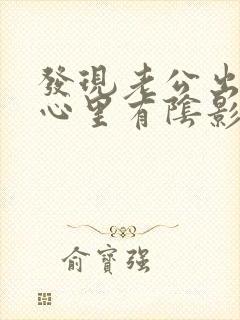 發現老公出
心里有陰影
俞寶强